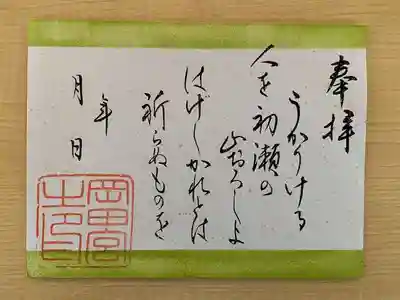 奉拝
うかりける
人を初瀬の
山おろしよ
はげしかれとは
祈らぬものを
年
月 日
岡田宮
之印